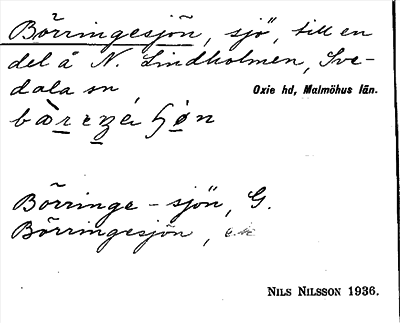 Börringesjön, sjö, till en
del å N. Lindholmen, Sve-
dala sn
Oxie hd, Malmöhus län.
Börringe - sjön, G.
Börringesjön,
NILS NILSSON 1936.